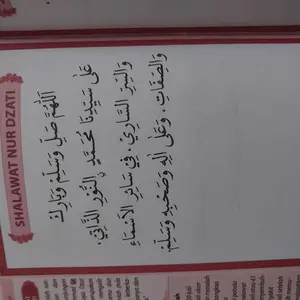 SHALAWAT NUR DZATI
اَللّٰهُمَّ صَلِّ وَسَلِّمْ وَبَارِكْ
عَلٰى سَيِّدِنَا مُحَمَّدٍ النُّوْرِ الذَّاتِيْ،
وَالسِّرِّ السَّارِيْ، فِيْ سَائِرِ الْأَسْمَاءِ
وَالصِّفَاتِ، وَعَلٰى اٰلِهِ وَصَحْبِهِ وَسَلِّمْ